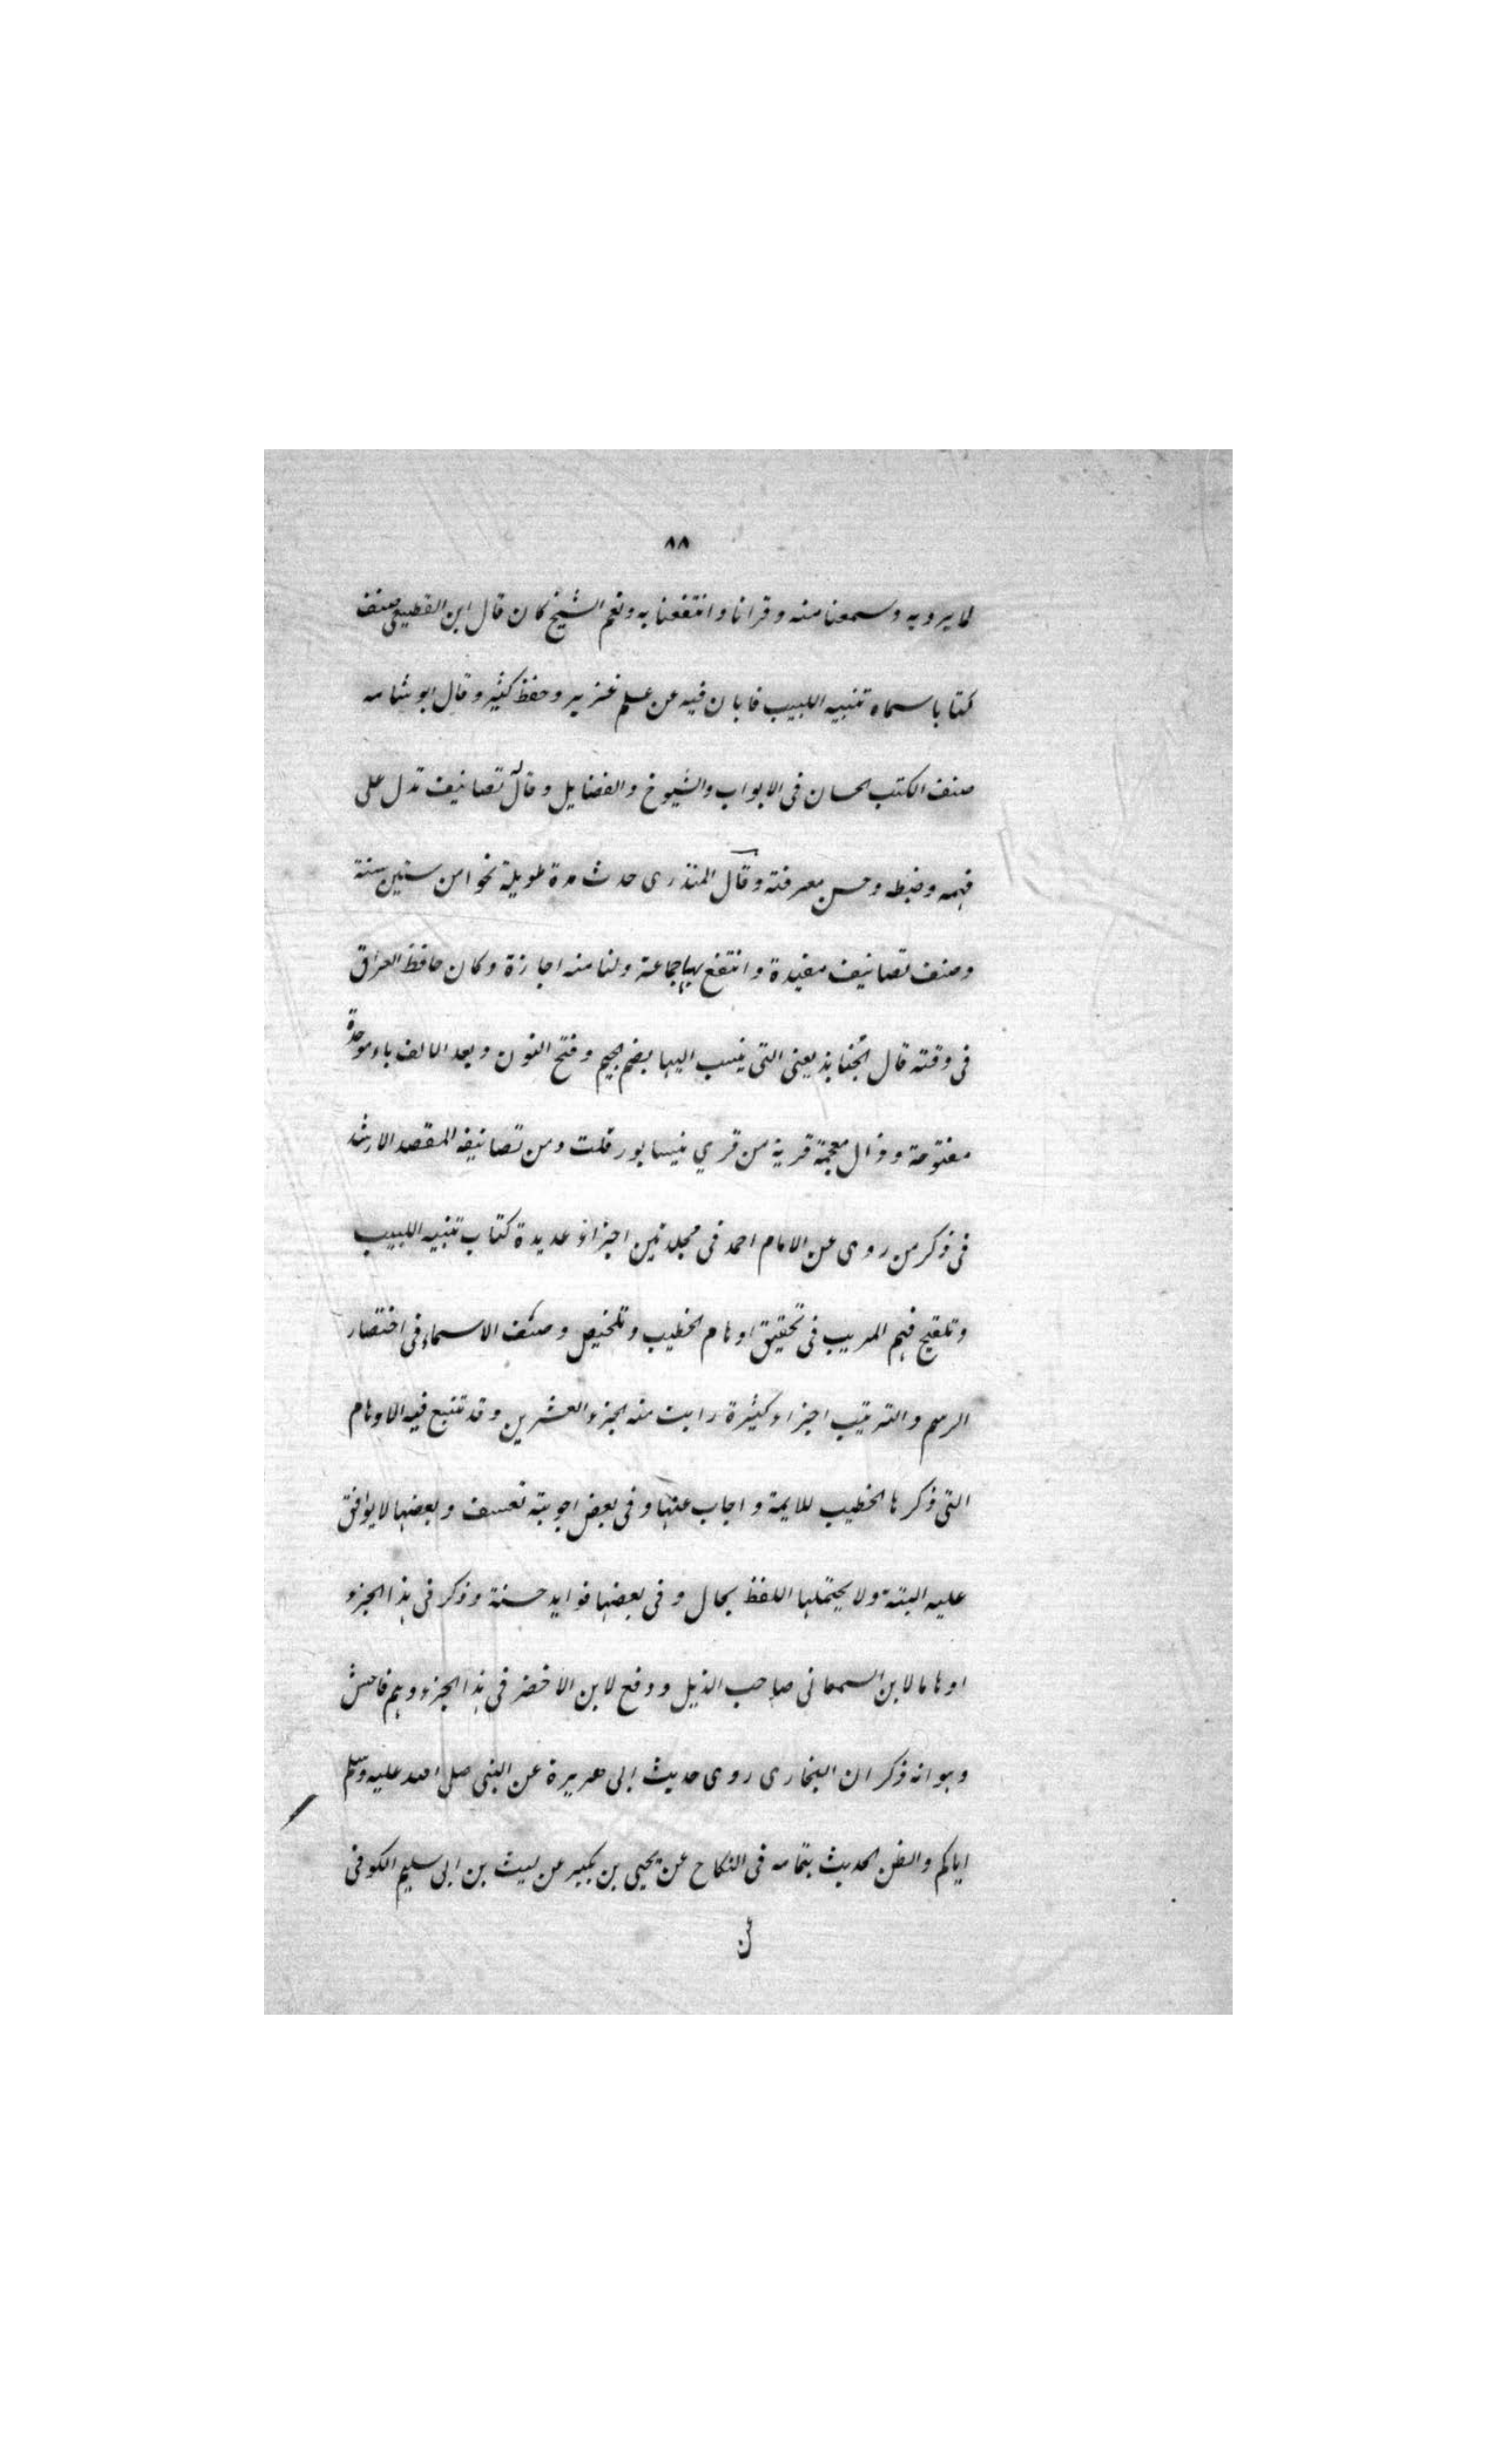 ٨٨
لما يرويه وسمعنا منه وقرانا وانتفعنا به ونعم الشيخ كان قال ابن القطيعي صنف
كتابا سماه تنبيه اللبيب فابان فيه عن علم غزير وحفظ كثير وقال ابو شامه
صنف الكتب الحسان فى الابواب والشيوخ والفضايل وقال تصانيف تدل على
فهمه وضبطه وحسن معرفته وقال المنذرى حدث مدة طويلة نحوا من ستين سنة
وصنف تصانيف مفيدة وانتفع بها جماعة ولنا منه اجازة وكان حافظ العراق
فى وقته قال الجُنابذ يعنى التى ينسب اليها بضم الجيم وفتح النون وبعد الالف باء موحدة
مفتوحة وذال معجمة قرية من قري نيسابور قلت ومن تصانيفه المقصد الارشد
فى ذكر من روى عن الامام احمد فى مجلدين اجزاء عديدة كتاب تنبيه اللبيب
وتلقيح فهم المريب فى تحقيق اوهام الخطيب وتلخيص وصنف الاسماء فى اختصار
الرسم والترتيب اجزاء كثيرة رايت منه الجزء العشرين وقد تتبع فيه الاوهام
التى ذكرها الخطيب للايمة واجاب عنها وفى بعض اجوبته تعسف وبعضها لا يوافق
عليه البتة ولا يحتملها اللفظ بحال وفى بعضها فوايد حسنة وذكر فى هذا الجزء
اوهاما لابن السمعانى صاحب الذيل ووقع لابن الأخضر فى هذا الجزء وهم فاحش
وهو انه ذكر ان البخارى روى حديث ابى هريرة عن النبى صلى الله عليه وسلم
اياكم والظن الحديث بتمامه فى النكاح عن يحيى بن بكير عن ليث بن ابى سليم الكوفى